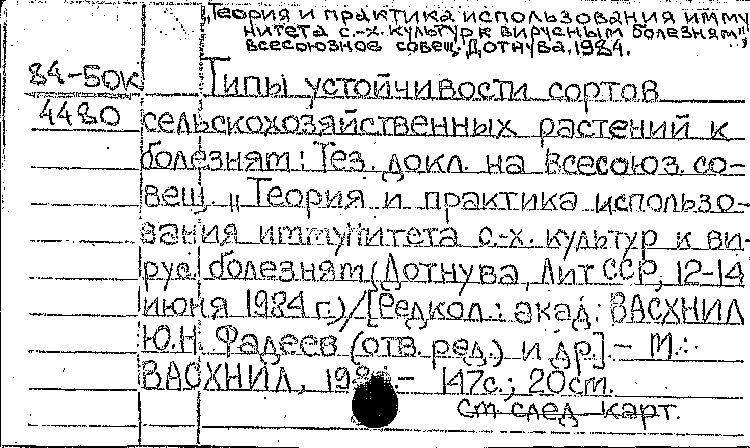 „Теория и практика использования имму
нитета с.-х. культур к вирусным болезням",
Всесоюзное совещ. Дотнува, 1984.
84-50к Типы устойчивости сортов
4480 сельскохозяйственных растений к
болезням: Тез. докл. на Всесоюз. со-
вещ. „Теория и практика использо-
вания иммунитета с.-х. культур к ви-
рус. болезням (Дотнува, Лит ССР, 12-14
июня 1984 г.)/[Редкол.: акад. ВАСХНИЛ
Ю.Н. Фадеев (отв. ред.) и др.].- М.:
ВАСХНИЛ, 198 .- 147с.; 20см.
см след. карт.